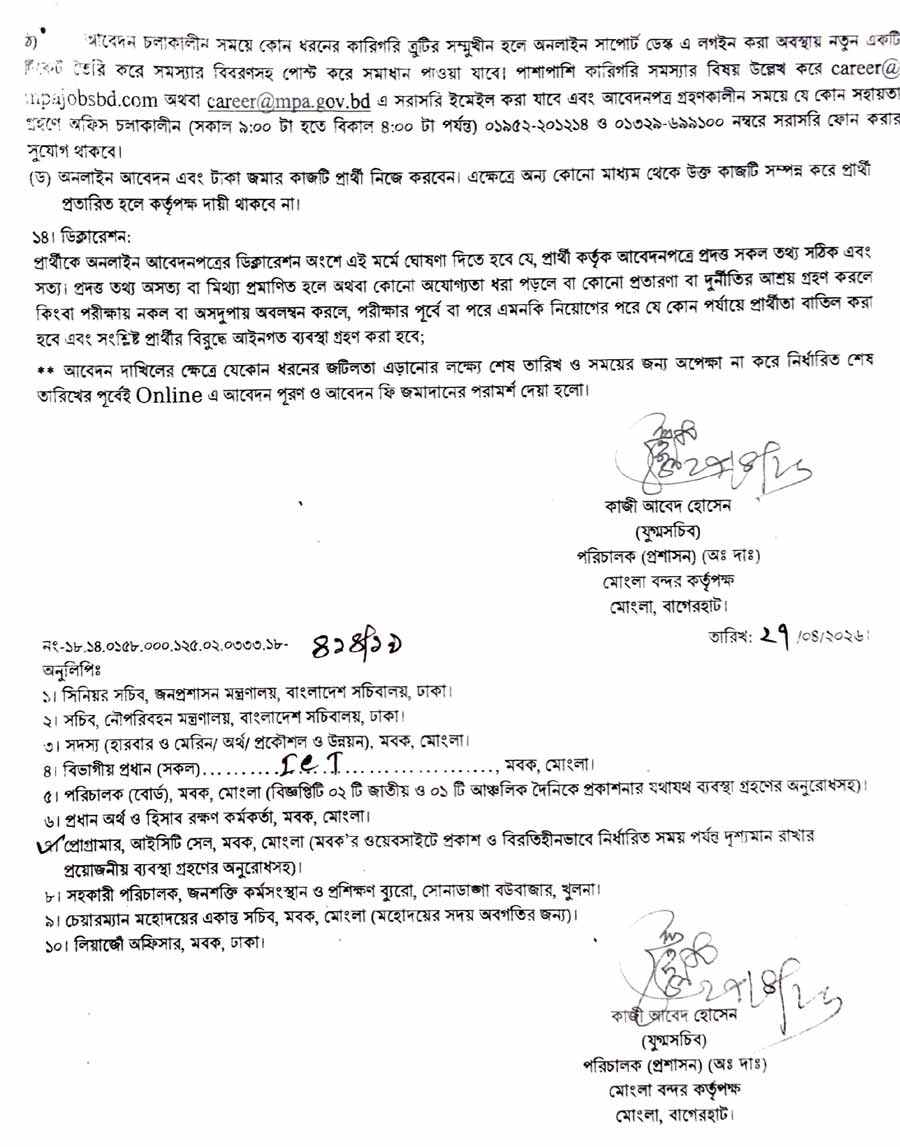 ঠ) আবেদন চলাকালীন সময়ে কোন ধরনের কারিগরি ত্রুটির সম্মুখীন হলে অনলাইন সাপোর্ট ডেস্ক এ লগইন করা অবস্থায় নতুন একটি
টিকেট তৈরি করে সমস্যার বিবরণসহ পোস্ট করে সমাধান পাওয়া যাবে। পাশাপাশি কারিগরি সমস্যার বিষয় উল্লেখ করে career@
mpajobsbd.com অথবা career@mpa.gov.bd এ সরাসরি ইমেইল করা যাবে এবং আবেদনপত্র গ্রহণকালীন সময়ে যে কোন সহায়তা
গ্রহণে অফিস চলাকালীন (সকাল ৯:০০ টা হতে বিকাল ৪:০০ টা পর্যন্ত) ০১৯৫২-২০১২১৪ ও ০১৩২৯-৬৯৯১০০ নম্বরে সরাসরি ফোন করার
সুযোগ থাকবে।
(ড) অনলাইন আবেদন এবং টাকা জমার কাজটি প্রার্থী নিজে করবেন। এক্ষেত্রে অন্য কোনো মাধ্যম থেকে উক্ত কাজটি সম্পন্ন করে প্রার্থী
প্রতারিত হলে কর্তৃপক্ষ দায়ী থাকবে না।
১৪। ডিক্লারেশন:
প্রার্থীকে অনলাইন আবেদনপত্রের ডিক্লারেশন অংশে এই মর্মে ঘোষণা দিতে হবে যে, প্রার্থী কর্তৃক আবেদনপত্রে প্রদত্ত সকল তথ্য সঠিক এবং
সত্য। প্রদত্ত তথ্য অসত্য বা মিথ্যা প্রমাণিত হলে অথবা কোনো অযোগ্যতা ধরা পড়লে বা কোনো প্রতারণা বা দুর্নীতির আশ্রয় গ্রহণ করলে
কিংবা পরীক্ষায় নকল বা অসদুপায় অবলম্বন করলে, পরীক্ষার পূর্বে বা পরে এমনকি নিয়োগের পরে যে কোন পর্যায়ে প্রার্থীতা বাতিল করা
হবে এবং সংশ্লিষ্ট প্রার্থীর বিরুদ্ধে আইনগত ব্যবস্থা গ্রহণ করা হবে;
** আবেদন দাখিলের ক্ষেত্রে যেকোন ধরনের জটিলতা এড়ানোর লক্ষ্যে শেষ তারিখ ও সময়ের জন্য অপেক্ষা না করে নির্ধারিত শেষ
তারিখের পূর্বেই Online এ আবেদন পূরণ ও আবেদন ফি জমাদানের পরামর্শ দেয়া হলো।
কাজী আবেদ হোসেন
(যুগ্মসচিব)
পরিচালক (প্রশাসন) (অঃ দাঃ)
মোংলা বন্দর কর্তৃপক্ষ
মোংলা, বাগেরহাট।
নং-১৮.১৪.০১৫৮.০০০.১২৫.০২.০৩৩৩.১৮-
তারিখ: ২৭/০৪/২০২৬।
অনুলিপিঃ
১। সিনিয়র সচিব, জনপ্রশাসন মন্ত্রণালয়, বাংলাদেশ সচিবালয়, ঢাকা।
২। সচিব, নৌপরিবহন মন্ত্রণালয়, বাংলাদেশ সচিবালয়, ঢাকা।
৩। সদস্য (হারবার ও মেরিন/ অর্থ/ প্রকৌশল ও উন্নয়ন), মবক, মোংলা।
৪। বিভাগীয় প্রধান (সকল)..........ICT......................, মবক, মোংলা।
৫। পরিচালক (বোর্ড), মবক, মোংলা (বিজ্ঞপ্তিটি ০২ টি জাতীয় ও ০১ টি আঞ্চলিক দৈনিকে প্রকাশনার যথাযথ ব্যবস্থা গ্রহণের অনুরোধসহ)।
৬। প্রধান অর্থ ও হিসাব রক্ষণ কর্মকর্তা, মবক, মোংলা।
প্রোগ্রামার, আইসিটি সেল, মবক, মোংলা (মবক'র ওয়েবসাইটে প্রকাশ ও বিরতিহীনভাবে নির্ধারিত সময় পর্যন্ত দৃশ্যমান রাখার
প্রয়োজনীয় ব্যবস্থা গ্রহণের অনুরোধসহ)।
৮। সহকারী পরিচালক, জনশক্তি কর্মসংস্থান ও প্রশিক্ষণ ব্যুরো, সোনাডাঙ্গা বউবাজার, খুলনা।
৯। চেয়ারম্যান মহোদয়ের একান্ত সচিব, মবক, মোংলা (মহোদয়ের সদয় অবগতির জন্য)।
১০। লিয়াজোঁ অফিসার, মবক, ঢাকা।
কাজী আবেদ হোসেন
(যুগ্মসচিব)
পরিচালক (প্রশাসন) (অঃ দাঃ)
মোংলা বন্দর কর্তৃপক্ষ
মোংলা, বাগেরহাট।